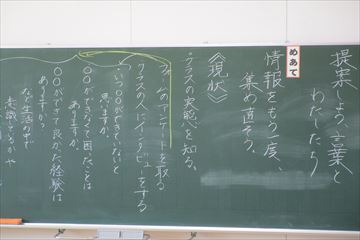 提案しよう、言葉と
わたしたち
めあて
情報をもう一度、
集め直そう。
《現状》
・クラスの実態を知る。
フォームのアンケートを取る
クラスの人にインタビューをする
・いつ〇〇ができていないと
思いますか。
〇〇ができなくて困ったことは
ありますか。
〇〇ができて良かった経験は
ありますか。
など生活の中で
意識しているか